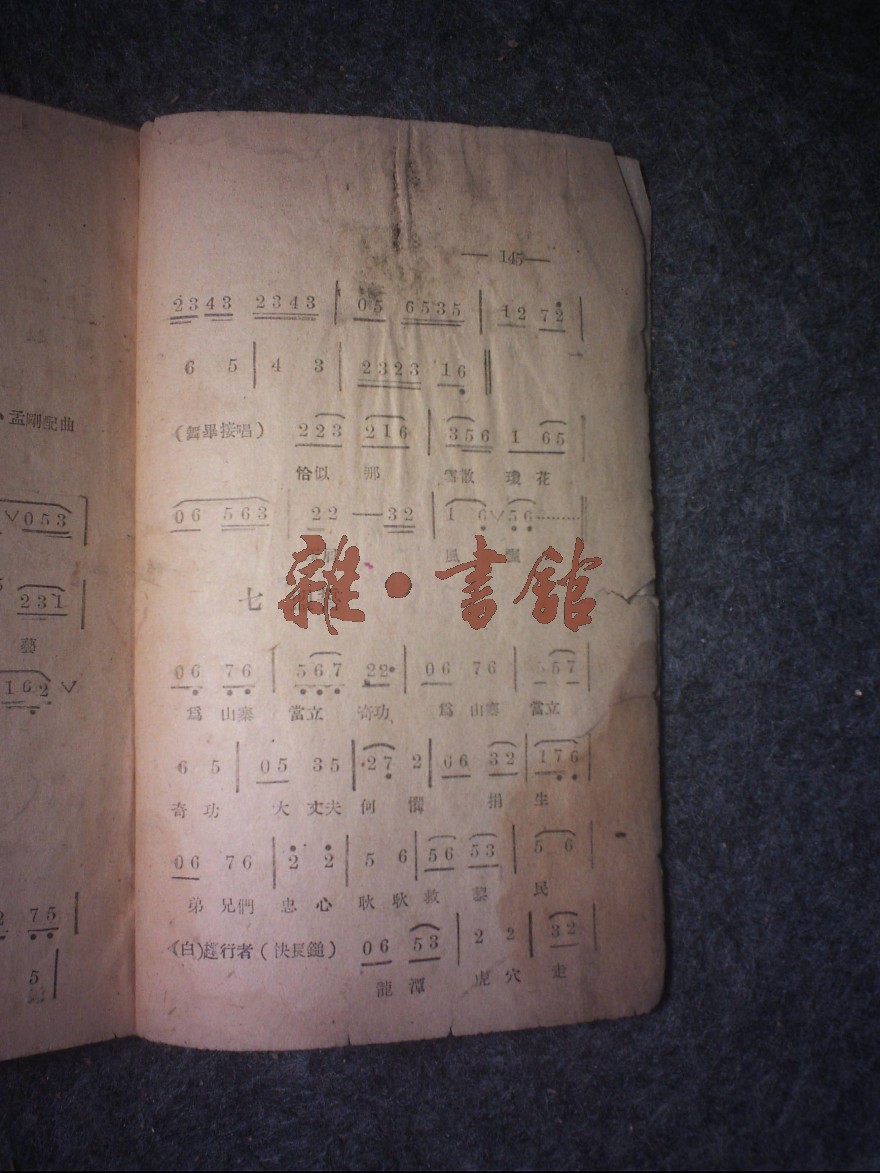 — 145 —
2343 2343 | 05 6535 | 12 72 |
6 5 | 4 3 | 2323 16 ‖
(舞畢接唱) 223 216 | 356 1 65 |
恰似 那 雪散 瓊 花
06 563 | 22 — 32 | 1 6 ∨ 56 ……
風 飄
七
雜·書館
06 76 | 567 22 | 06 76 | 557 |
爲 山寨 當立 奇功 爲 山寨 當立
6 5 | 05 35 | 27 2 | 66 32 | 176 |
奇 功 大 丈夫 何 懼 捐 生
06 76 | 2 2 | 5 6 | 56 53 | 5 6 |
弟 兄們 忠 心 耿 耿 救 黎 民
(白)趕行者(快長鎚) 06 53 | 2 2 | 32 |
龍 潭 虎 穴 走
孟剛配曲
∨053 |
231 |
藝
162 ∨
2 75 |
5 |